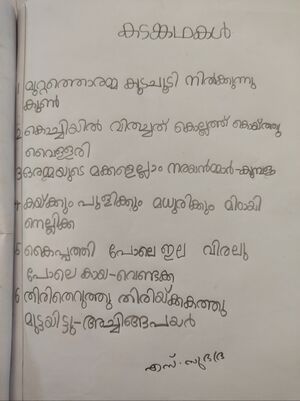 കടങ്കഥകൾ
1 മുറ്റത്തൊരമ്മ കുടചൂടി നിൽക്കുന്നു
കൂൺ
2 കൊച്ചിയിൽ വിതച്ചത് കൊല്ലത്ത് കൊയ്തു
വെള്ളരി
3 ഒരമ്മയുടെ മക്കളെല്ലാം നരയൻമാർ-കുമ്പളം
4 കയ്ക്കും പുളിക്കും മധുരിക്കും മിഠായി
നെല്ലിക്ക
5 കൈപ്പത്തി പോലെ ഇല വിരലു
പോലെ കായ-വെണ്ടക്ക
6 തിരിതെറുത്തു തിരിയ്ക്കകത്തു
മുട്ടയിട്ടു-അച്ചിങ്ങപയർ
എസ്. സുഭദ്ര